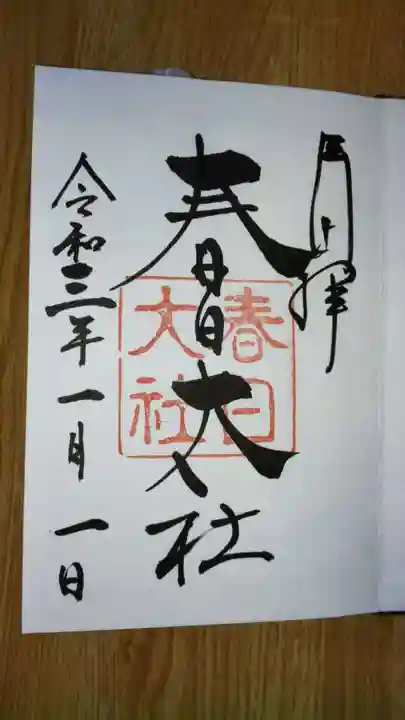 春日大社
春日
大社
令和三年一月一日